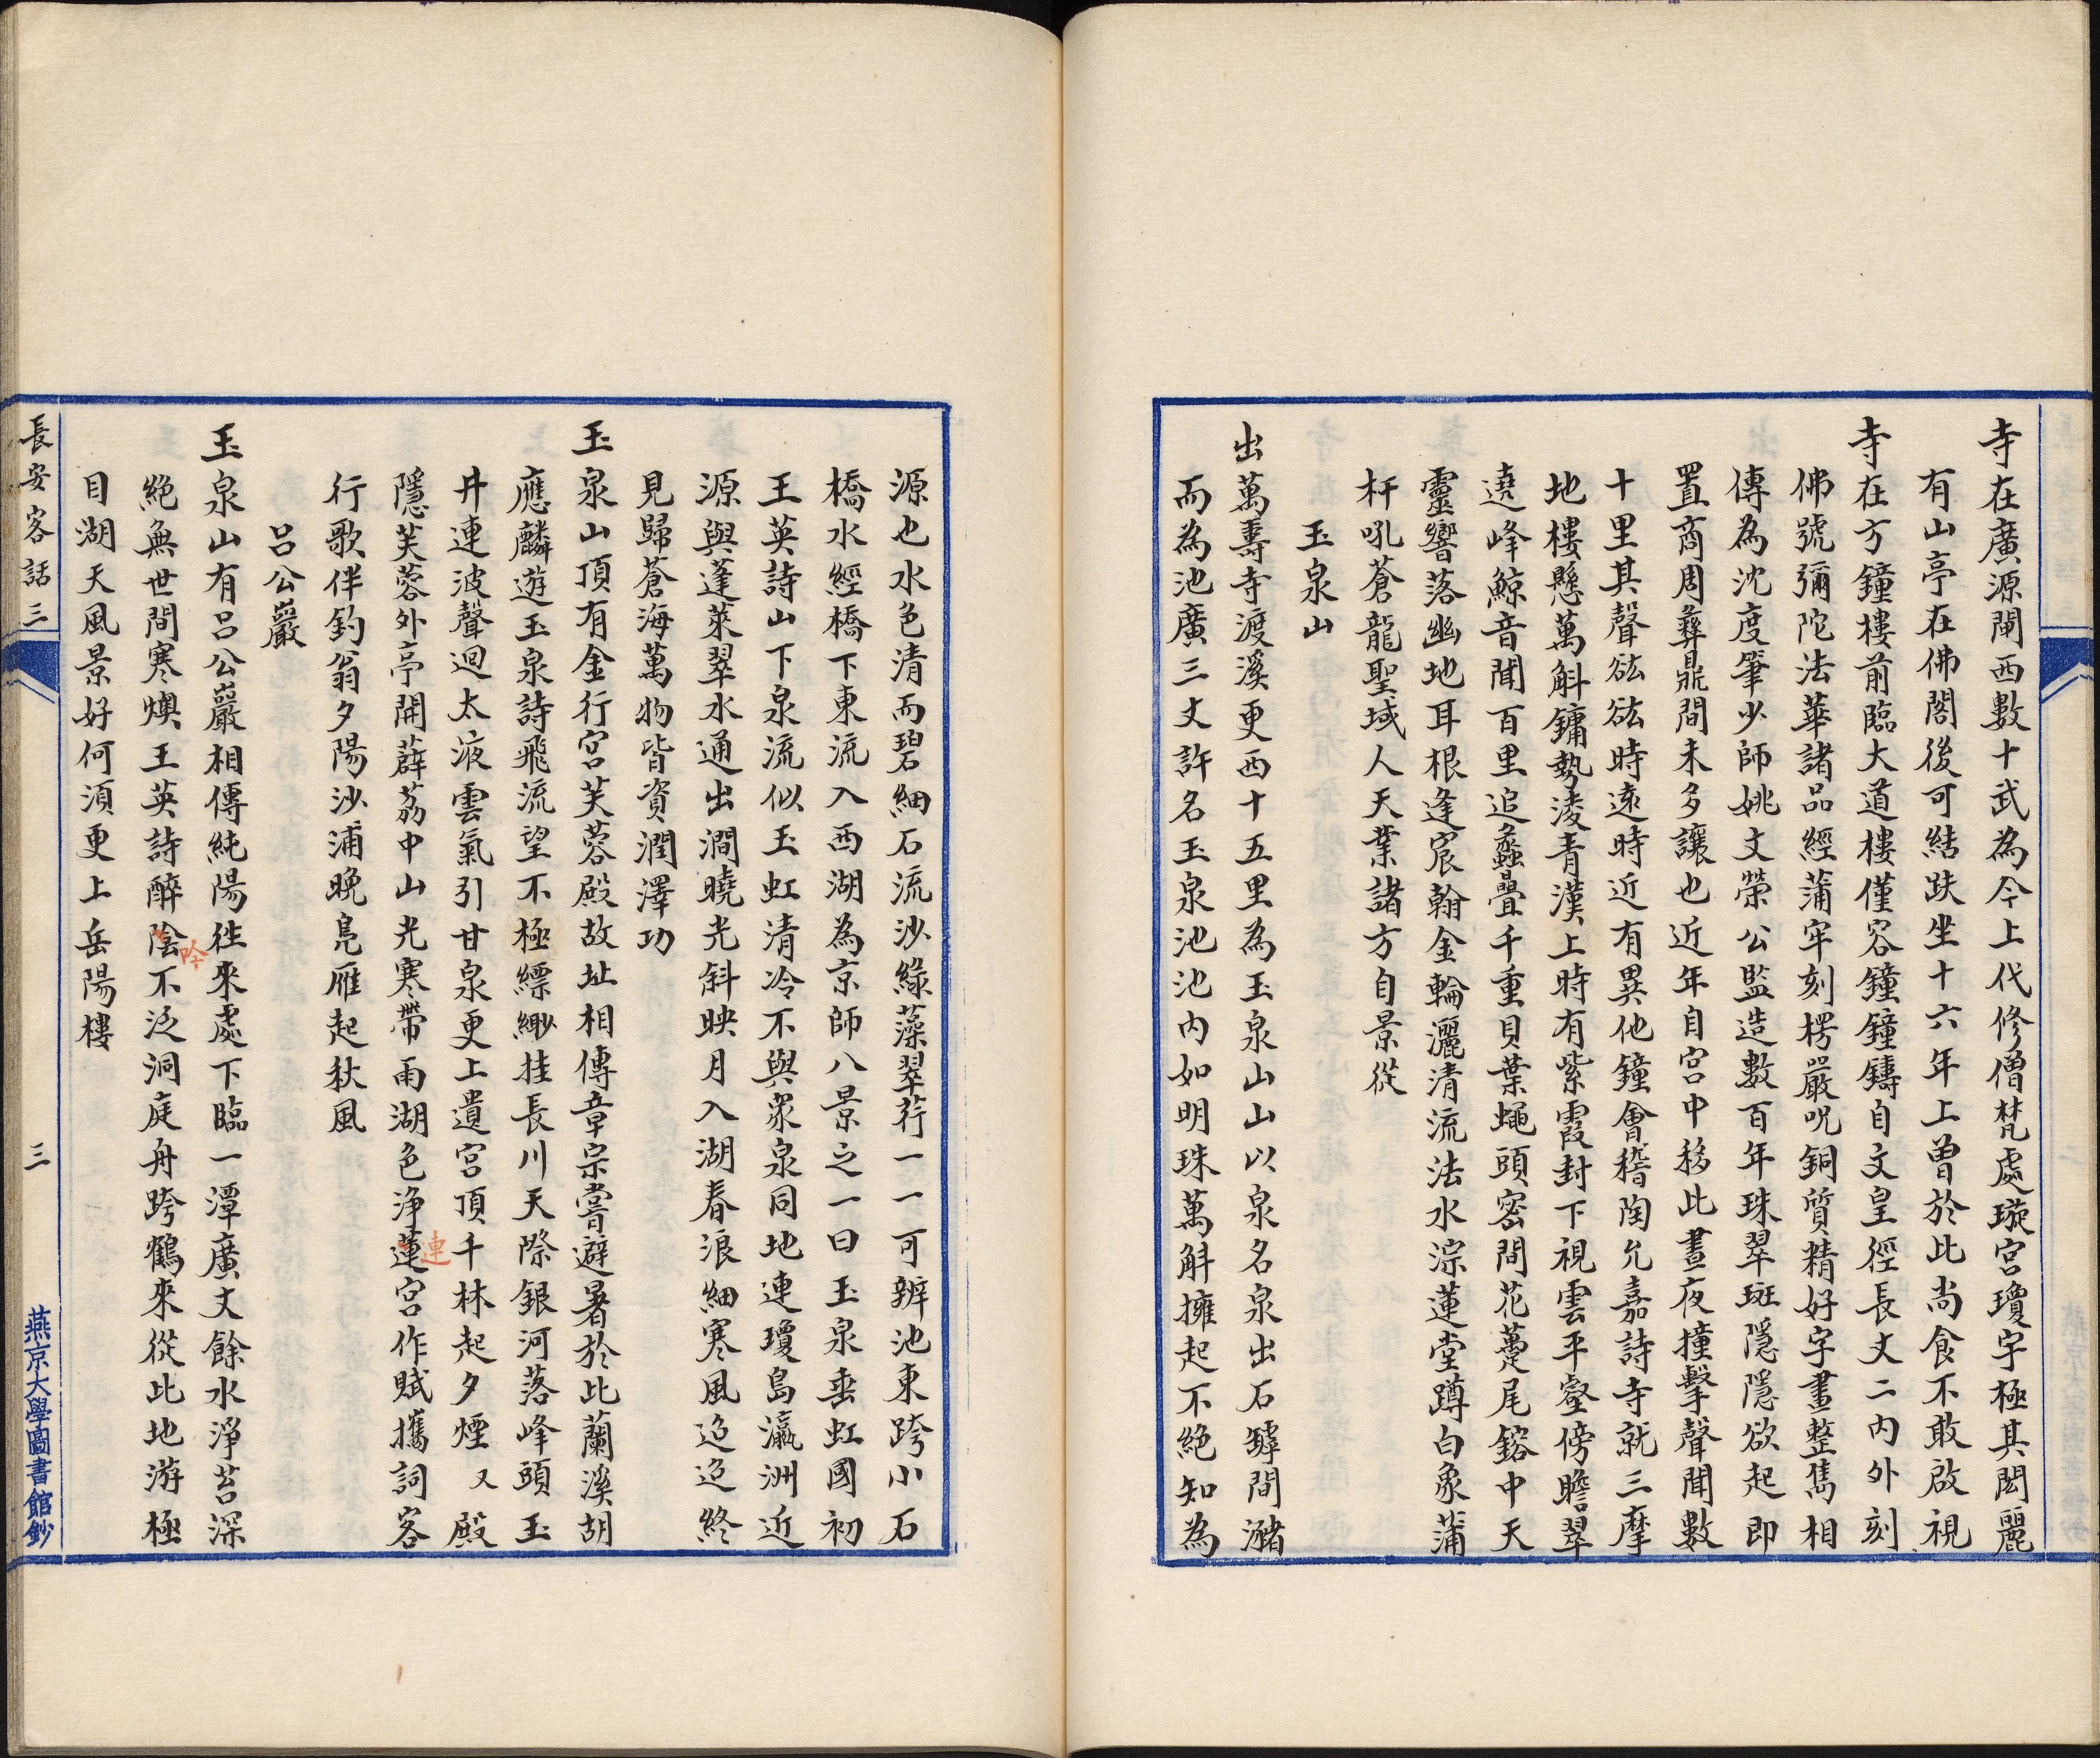 寺在廣源閘西數十武為今上代修僧梵處璇宮瓊宇極其閎麗
有山亭在佛閣後可結趺坐十六年上曽於此尚食不敢啟視
寺在方鐘樓前臨大道樓僅容鐘鐘鑄自文皇徑長丈二內外刻
佛號彌陀法華諸品經蒲牢刻楞嚴呪銅質精好字畫整雋相
傳為沈度筆少師姚文榮公監造數百年珠翠斑隱隱欲起即
置商周彝鼎間未多讓也近年自宮中移此晝夜撞擊聲聞數
十里其聲谹谹時遠時近有異他鐘會稽陶允嘉詩寺就三摩
地樓懸萬斛鏞勢淩青漢上時有紫霞封下視雲平壑傍瞻翠
遶峰鯨音聞百里追蠡疊千重貝葉蠅頭密間花蠆尾鎔中天
靈響落幽地耳根逢宸翰金輪灑清流法水淙蓮堂蹲白象蒲
杆吼蒼龍聖域人天業諸方自景從
玉泉山
出萬壽寺渡溪更西十五里為玉泉山山以泉名泉出石罅間瀦
而為池廣三丈許名玉泉池池內如明珠萬斛擁起不絕知為
源也水色清而碧細石流沙綠藻翠荇一一可辨池東跨小石
橋水經橋下東流入西湖為京師八景之一曰玉泉垂虹國初
王英詩山下泉流似玉虹清冷不與衆泉同地連瓊島瀛洲近
源與蓬萊翠水通出澗曉光斜映月入湖春浪細寒風迢迢終
見歸蒼海萬物皆資潤澤功
玉泉山頂有金行宮芙蓉殿故址相傳章宗嘗避暑於此蘭溪胡
應麟遊玉泉詩飛流望不極縹緲挂長川天際銀河落峰頭玉
井連波聲迴太液雲氣引甘泉更上遺宮頂千林起夕煙又殿
隱芙蓉外亭開薜荔中山光寒帶雨湖色淨蓮宮作賦攜詞客
連
行歌伴釣翁夕陽沙浦晚鳧雁起秋風
呂公巖
玉泉山有呂公巖相傳純陽徃來處下臨一潭廣丈餘水淨苔深
絕無世間寒燠王英詩醉陰不泛洞庭舟跨鶴來從此地游極
吟
目湖天風景好何須更上岳陽樓
長安客話三
三
燕京大學圖書館鈔